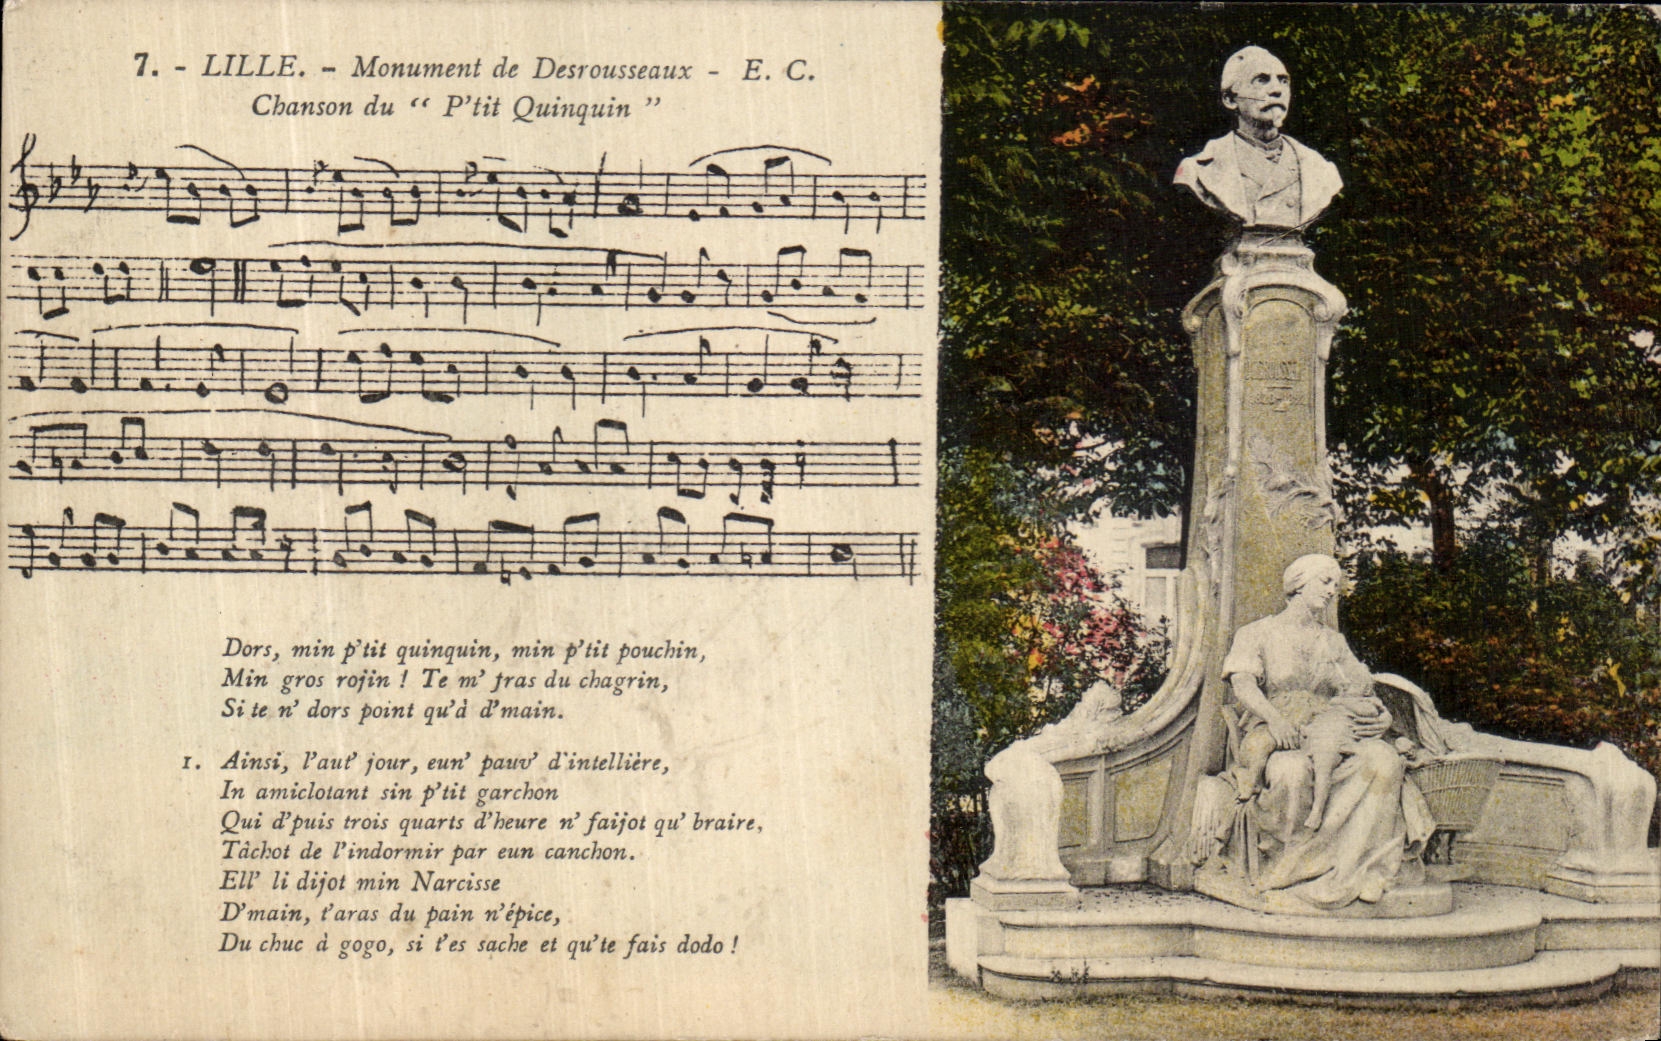 7. - LILLE. - Monument de Desrousseaux - E. C.
Chanson du “ P'tit Quinquin ”
Dors, min p'tit quinquin, min p'tit pouchin,
Min gros rojin ! Te m' fras du chagrin,
Si te n' dors point qu'à d'main.
1. Ainsi, l'aut' jour, eun' pauv' d'intellière,
In amiclotant sin p'tit garchon
Qui d'puis trois quarts d'heure n' faijot qu' braire,
Tâchot de l'indormir par eun canchon.
Ell' li dijot min Narcisse
D'main, t'aras du pain n'épice,
Du chuc à gogo, si t'es sache et qu'te fais dodo !